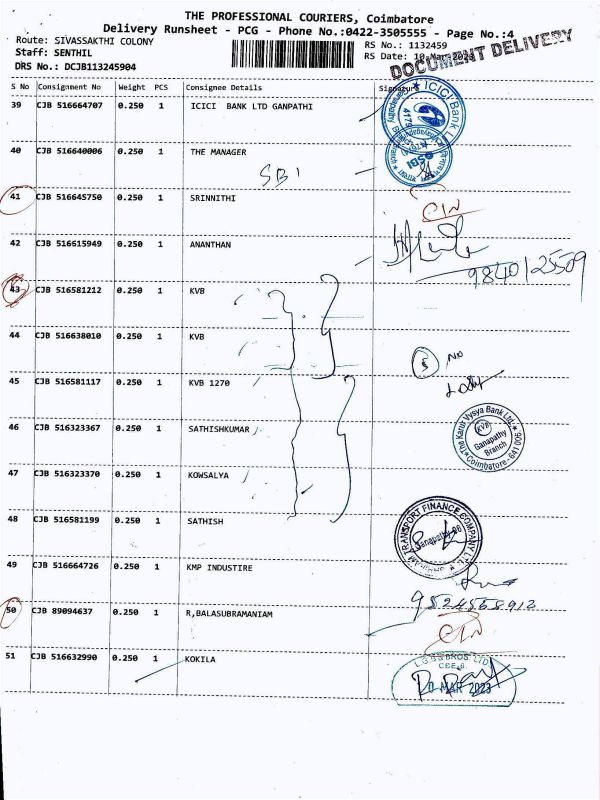 THE PROFESSIONAL COURIERS, Coimbatore
Delivery Runsheet - PCG - Phone No.:0422-3505555 - Page No.:4
Route: SIVASSAKTHI COLONY
Staff: SENTHIL
DRS No.: DCJB113245904
RS No.: 1132459
RS Date: 10-Mar-2023
DOCUMENT DELIVERY
S No Consignment No Weight PCS Consignee Details Signature
39 CJB 516664707 0.250 1 ICICI BANK LTD GANPATHI
ICICI Bank
40 CJB 516640006 0.250 1 THE MANAGER
SBI
SBI
41 CJB 516645750 0.250 1 SRINNITHI
CIN
42 CJB 516615949 0.250 1 ANANTHAN
9840125509
43 CJB 516581212 0.250 1 KVB
44 CJB 516638010 0.250 1 KVB
5 No
45 CJB 516581117 0.250 1 KVB 1270
46 CJB 516323367 0.250 1 SATHISHKUMAR
The Karur Vysya Bank Ltd.
KVB
Ganapathy
Branch
Coimbatore - 641 006.
47 CJB 516323370 0.250 1 KOWSALYA
48 CJB 516581199 0.250 1 SATHISH
TRANSPORT FINANCE COMPANY LTD
49 CJB 516664726 0.250 1 KMP INDUSTIRE
9524568912
50 CJB 89094637 0.250 1 R,BALASUBRAMANIAM
CIN
51 CJB 516632990 0.250 1 KOKILA
L.G.B & BROS. LTD
CBE-6.
10 MAR 2023